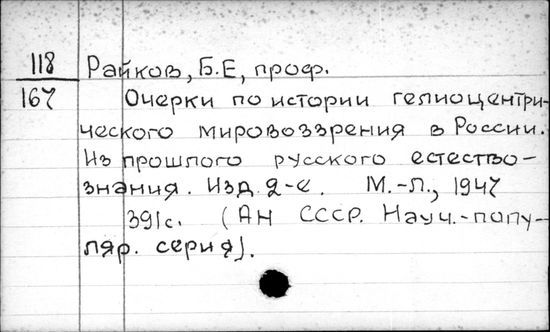 118 Райков, Б.Е, проф.
167 Очерки по истории гелиоцентри-
ческого мировоззрения в России.
Из прошлого русского естество-
знания. Изд. 2-е. М.-Л., 1947
391с. (АН СССР. Науч.-попу-
ляр. серия).